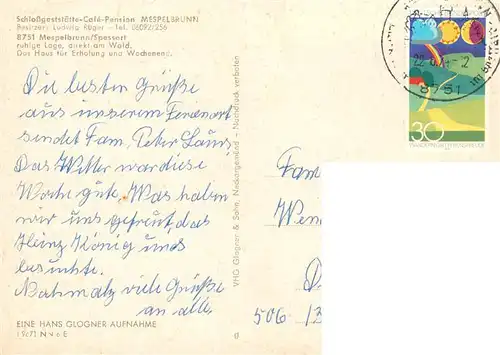 Schloßgaststätte-Café-Pension MESPELBRUNN
Besitzer: Ludwig Rüger - Tel. 06092/256
8751 Mespelbrunn/Spessart
ruhige Lage, direkt am Wald.
Das Haus für Erholung und Wochenend.
Die besten Grüße
aus unserem Ferienort
sendet Fam. Peter Lauis
Das Wetter war diese
Woche gute. Was haben
wir uns gefreut, das
Heinz König uns
besuchte.
Nochmalz viele Grüße
an alle.
EINE HANS GLOGNER AUFNAHME
VHG Glogner & Sohn, Neckargemünd - Nachdruck verboten
8751
30
Fam
506